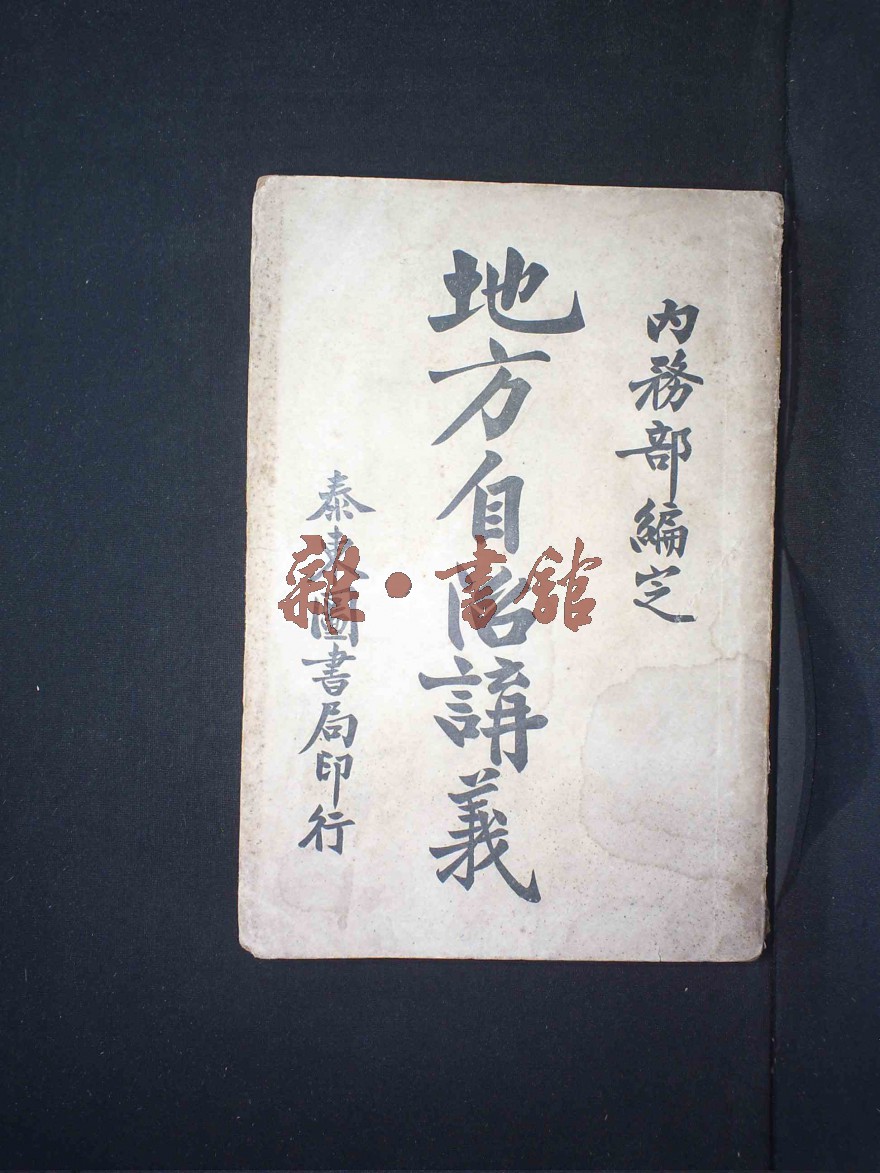 內務部編定
地方自治講義
泰東圖書局印行
雜·書館